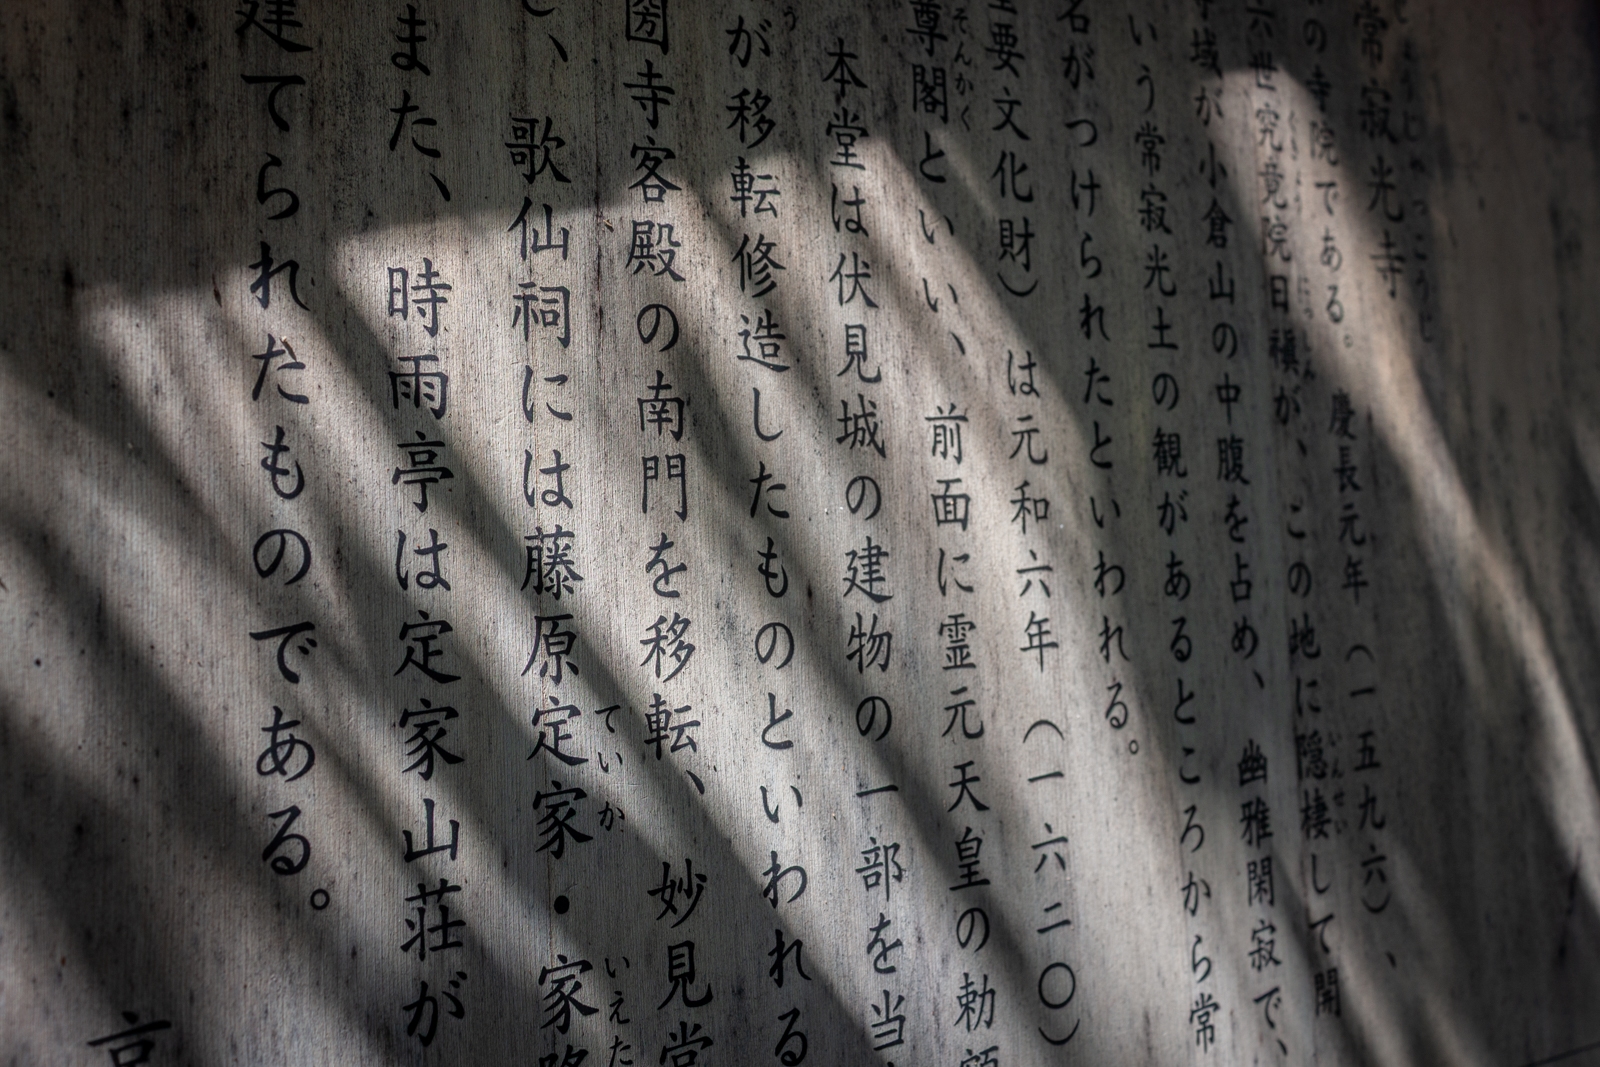 常寂光寺
の寺院である。慶長元年(一五九六)、
六世究竟院日禛が、この地に隠棲して開
いんせい
域が小倉山の中腹を占め、幽雅閑寂で、
いう常寂光土の観があるところから常
名がつけられたといわれる。
要文化財)は元和六年(一六二〇)
尊閣といい、前面に霊元天皇の勅額
そんかく
本堂は伏見城の建物の一部を当
が移転修造したものといわれる
圀寺客殿の南門を移転、妙見堂
、歌仙祠には藤原定家・家
ていか いえた
また、時雨亭は定家山荘が
建てられたものである。
京